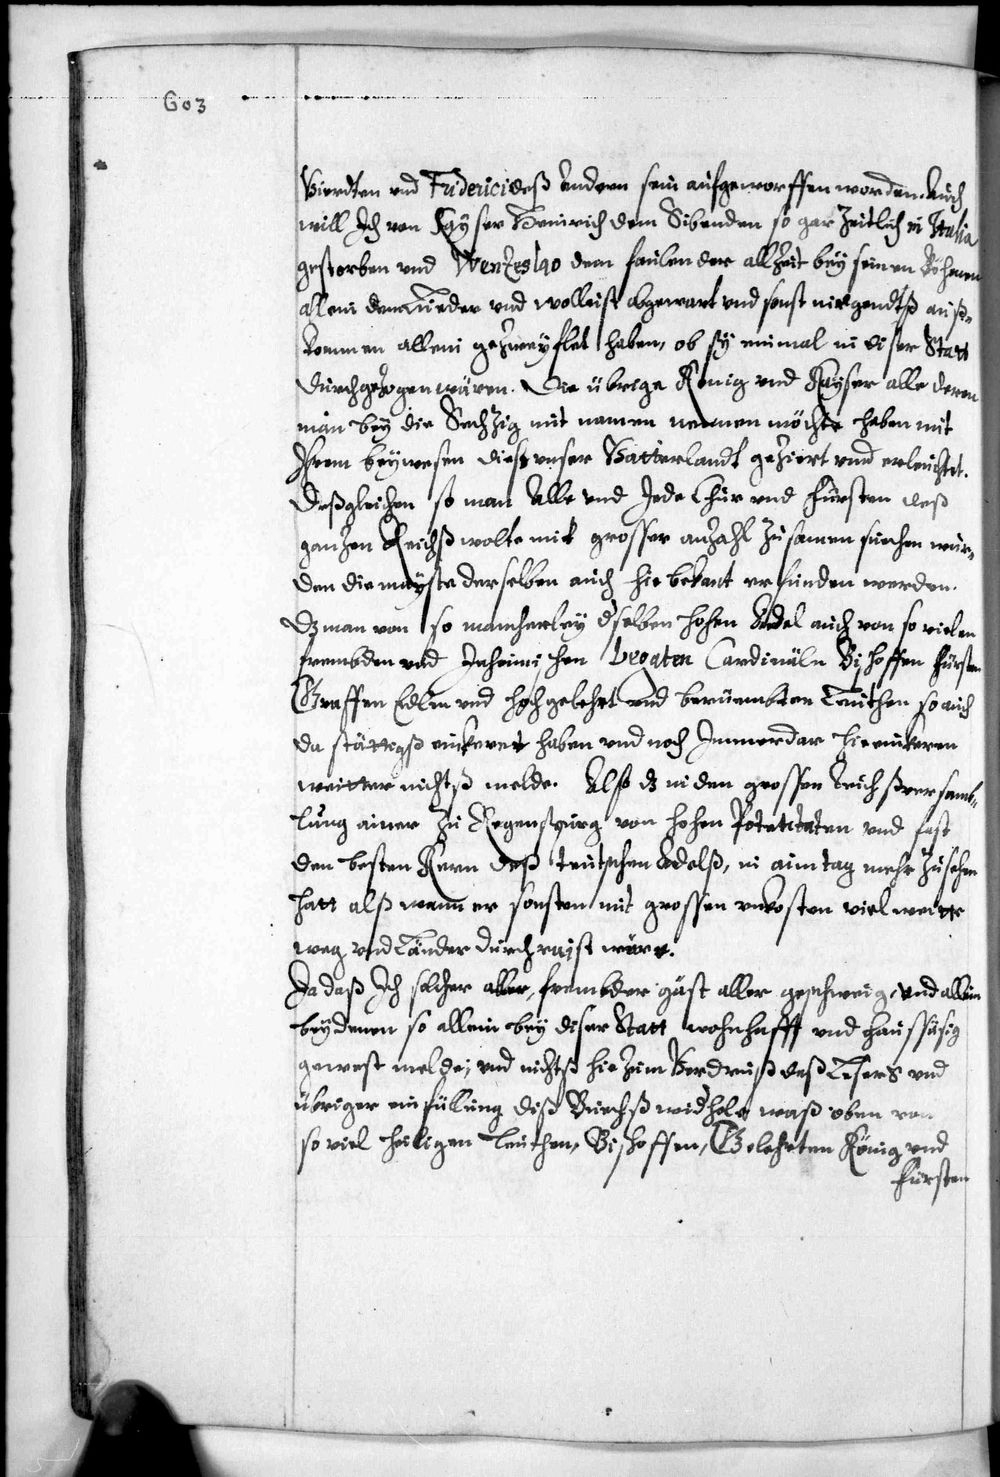 603
Vierdten vnd Friderici deß Andern sein aufgeworffen worden. Auch
will Ich von Kayser Heinrich dem Sibenden so gar zeitlich in Italia
gestorben vnd Wenzeslao dem faulen der allzeit bey seinen Böhmen
allein dem Lueder vnd wollust abgewart vnd sonst nirgendtß auß-
kommen allein gezweyflet haben, ob sy einmal in diser Statt
durchgezogen wären. Die übrige König vnd Kayser alle deren
man bey die Sechzig mit namen nennen möchte haben mit
Ihrem beywesen diß vnser Vatterlandt geziert vnd erleuchtet.
Deßgleichen so man Alle vnd Jede Chur vnd Fürsten deß
ganzen Reichß wolte mit grosser anzahl zusamen suechen wur-
den die mayste derselben auch hie bekant erfunden werden.
Dz man von so mancherley dselben hohen Adel auch von so vielen
frembden vnd Inheimischen Legaten Cardinäln Bischoffen Fürsten
Graffen Edlen vnd hochgelehrt vnd berüembten Leuthen so auch
da stättigß einkeret haben vnd noch Immerdar hie einkeren
weitter nichtß melde. Alß dz in den grossen Reichßversamb-
lung ainer zu Regenspurg von hohen Potentaten vnd fast
den besten Kern deß teutschen Adelß, in aim tag mehr zusehen
hatt alß wann er sonsten mit grossen vnkosten viel weitte
weg vnd Länder durchraist wäre.
Ja daß Ich solcher aller, frembder gäst aller geschweig, vnd allein
beydenen so allein bey diser Statt wohnhafft vnd haussäsig
gewest melde; vnd nichtß hie zum Verdruß deß Lesers vnd
übriger einfüllung diß Buechß widhole waß oben von
so viel heiligen Leuthen, Bischoffen, Gelehrten König vnd
Fürsten